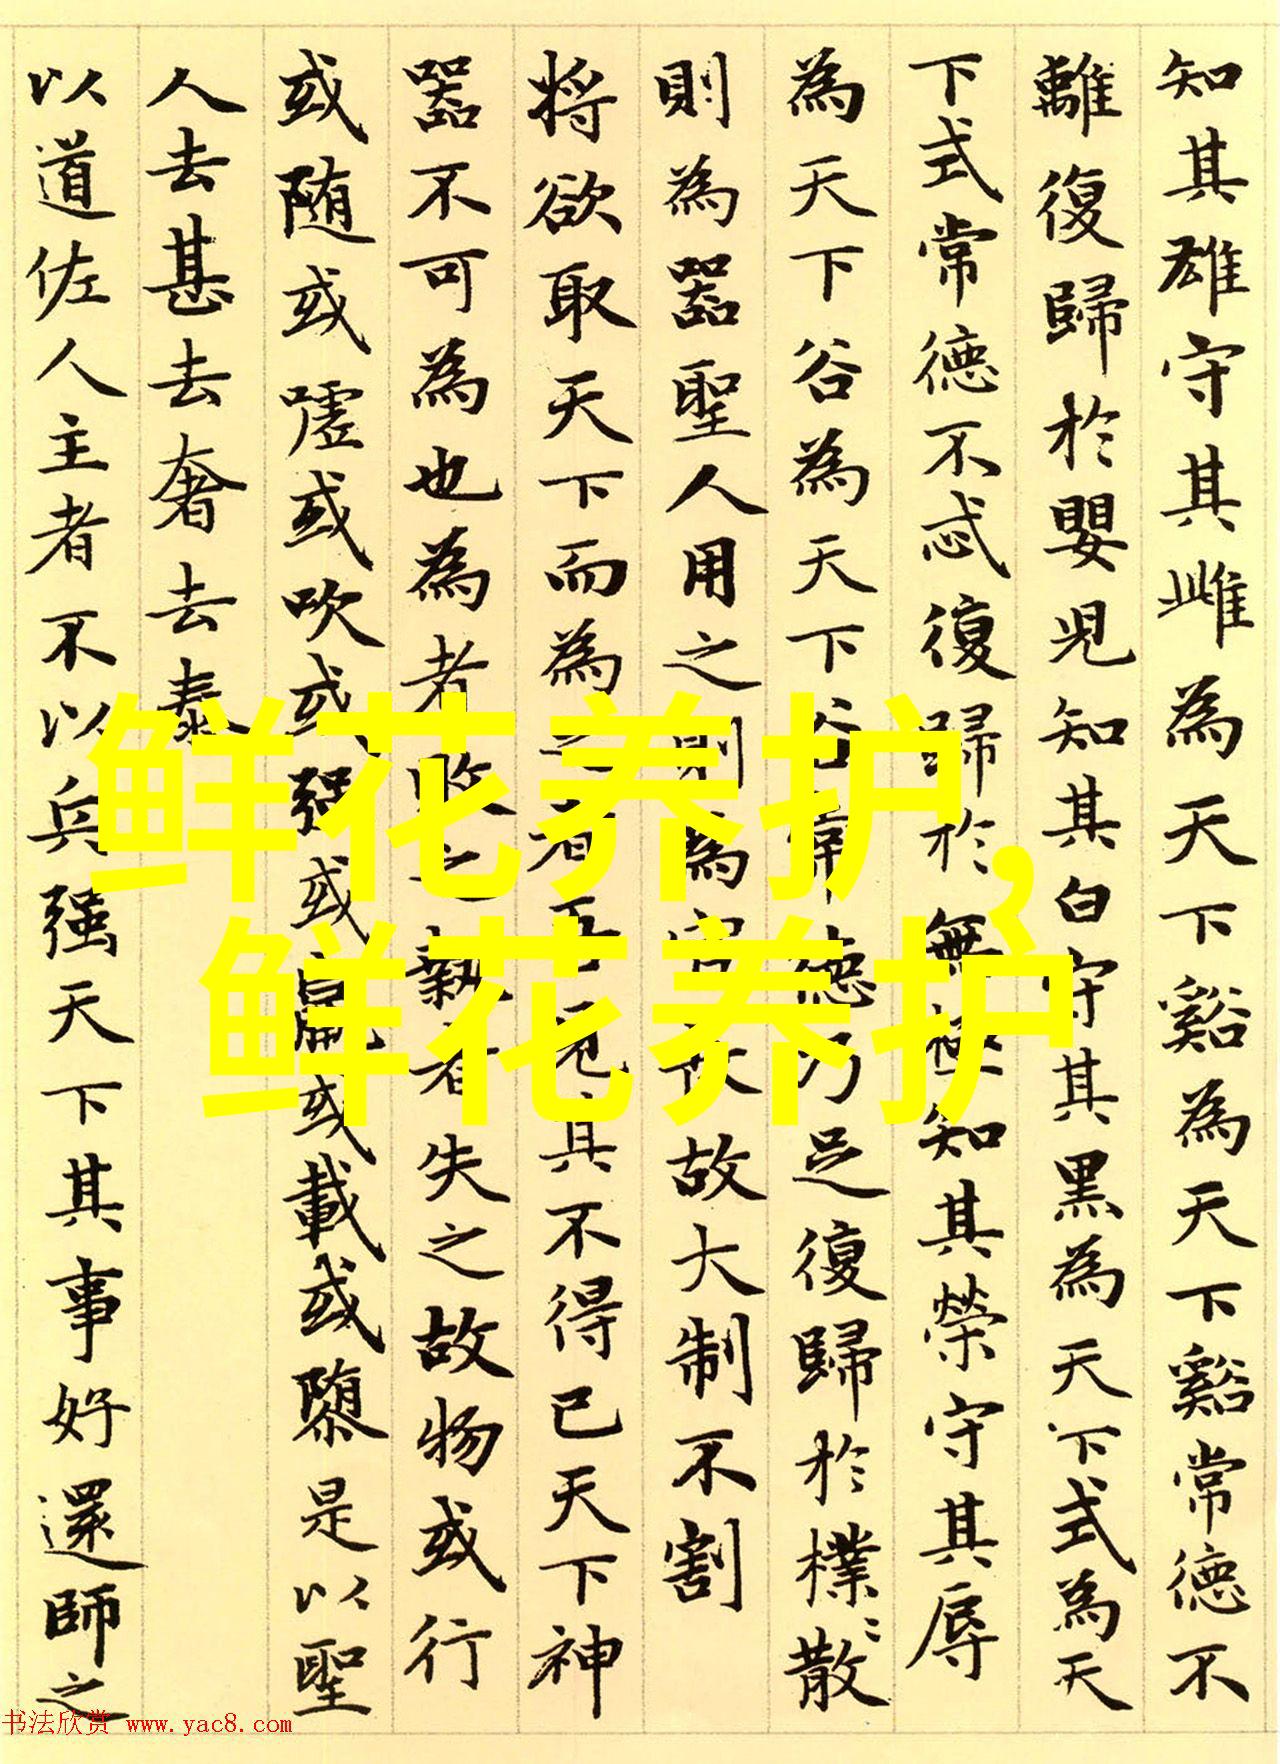 知其雄守其雌為天下谿為天下谿常德不
離復歸於嬰児知其白守其黑為天下式為天
下式常德不忒復歸於無極知其榮守其辱
為天下谷為天下谷常德乃足復歸於樸〻散
則為器聖人用之則為官長故大制不割
将欲取天下而為之者吾見其不得已天下神
器不可為也為者敗之執者失之故物或行
或随或嘘或吹或强或羸或載或隳是以聖
人去甚去奢去泰
以道佐人主者不以兵强天下其事好還師之
鲜花养护，
鲜花养护
书法欣赏 www.yac8.com